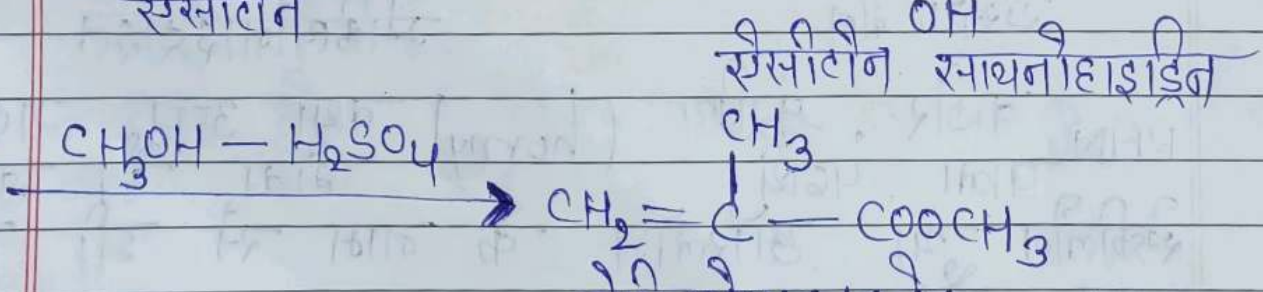 OH
ऐसीटोन सायनोहाइड्रिन
CH₃OH — H₂SO₄
CH₃
CH₂ = C — COOCH₃